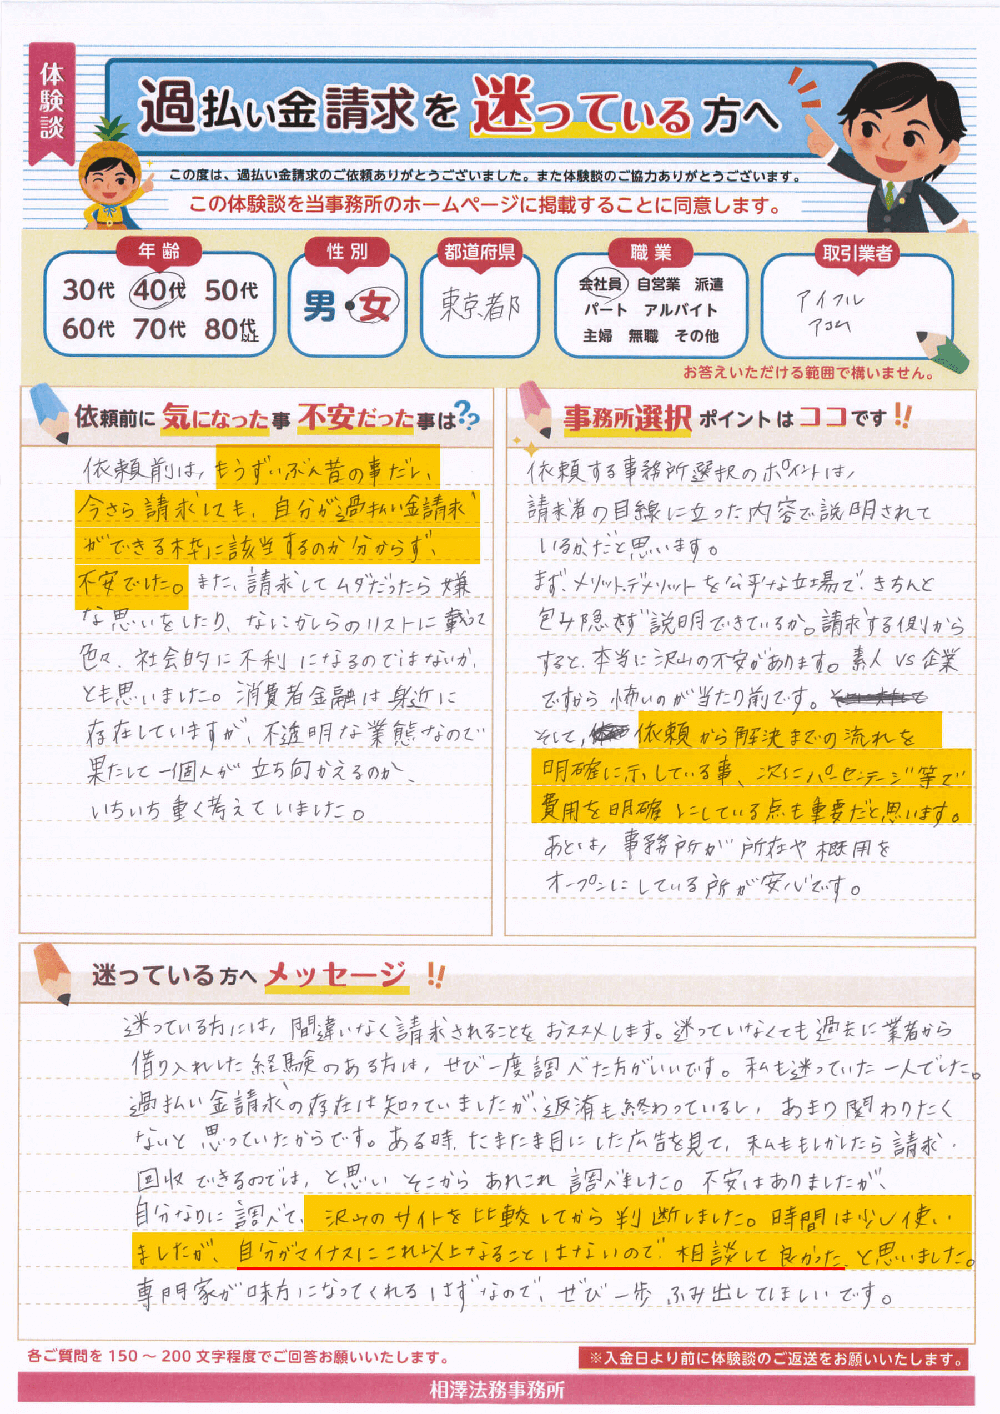 体験談
過払い金請求を迷っている方へ
この度は、過払い金請求のご依頼ありがとうございました。また体験談のご協力ありがとうございます。
この体験談を当事務所のホームページに掲載することに同意します。
年齢
30代 40代 50代
60代 70代 80代以上
性別
男・女
都道府県
東京都
職業
会社員 自営業 派遣
パート アルバイト
主婦 無職 その他
取引業者
アイフル
アコム
お答えいただける範囲で構いません。
依頼前に気になった事不安だった事は??
依頼前は、もうずいぶん昔の事だし、
今さら請求しても、自分が過払い金請求
ができる枠に該当するのか分からず、
不安でした。また、請求してムダだったら嫌
な思いをしたり、なにかしらのリストに載って
色々、社会的に不利になるのではないか、
とも思いました。消費者金融は身近に
存在していますが、不透明な業態なので
果たして一個人が立ち向かえるのか、
いちいち重く考えていました。
事務所選択ポイントはココです!!
依頼する事務所選択のポイントは、
請求者の目線に立った内容で説明されて
いるかだと思います。
まず、メリット、デメリットを公平な立場で、きちんと
包み隠さず説明できているか。請求する側から
すると、本当に沢山の不安があります。素人VS企業
ですから怖いのが当たり前です。
そして、依頼から解決までの流れを
明確に示している事、次にパーセンテージ等で
費用を明確にしている点も重要だと思います。
あとは、事務所が所在や概用を
オープンにしている所が安心です。
迷っている方へメッセージ!!
迷っている方には、間違いなく請求されることをおススメします。迷っていなくても過去に業者から
借り入れした経験のある方は、ぜひ一度調べた方がいいです。私も迷っていた一人でした。
過払い金請求の存在は知っていましたが、返済も終わっているし、あまり関わりたく
ないと思っていたからです。ある時、たまたま目にした広告を見て、私ももしかしたら請求・
回収できるのでは、と思いそこからあれこれ調べました。不安はありましたが、
自分なりに調べて、沢山のサイトを比較してから判断しました。時間は少し使い
ましたが、自分がマイナスにこれ以上なることはないので、相談して良かった、と思いました。
専門家が味方になってくれるはずなので、ぜひ一歩ふみ出してほしいです。
各ご質問を150～200文字程度でご回答お願いいたします。
※入金日より前に体験談のご返送をお願いいたします。
相澤法務事務所